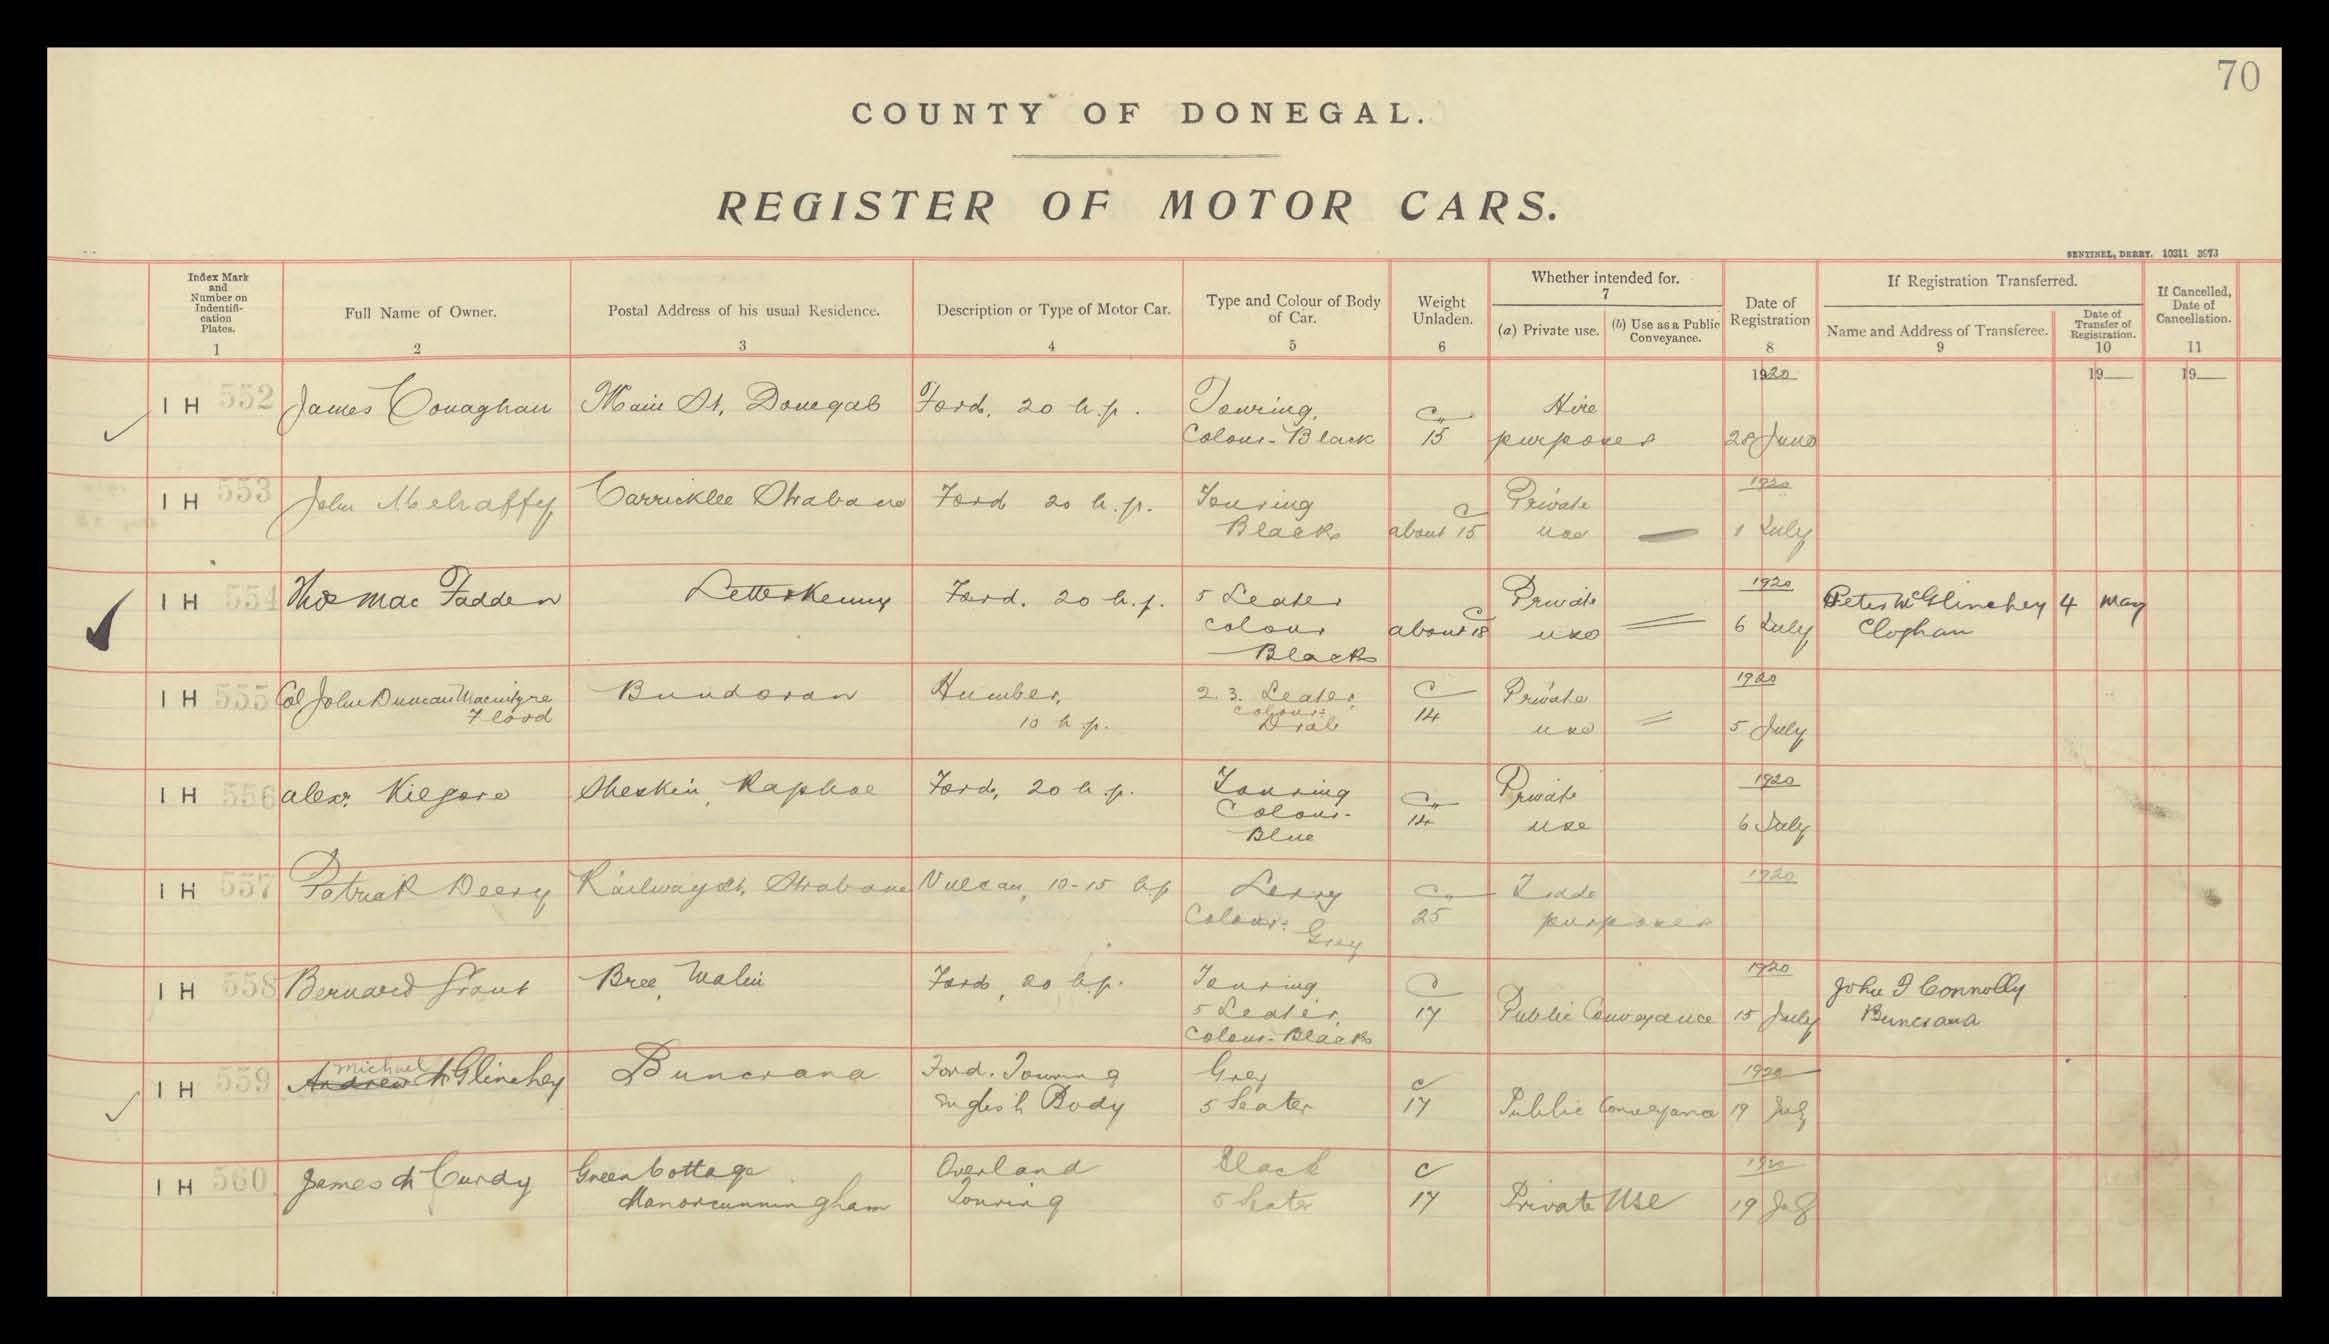 70
COUNTY OF DONEGAL.
REGISTER OF MOTOR CARS.
SENTINEL, DERRY. 10311 3973
Index Mark and Number on Indentifi-cation Plates. 1
Full Name of Owner. 2
Postal Address of his usual Residence. 3
Description or Type of Motor Car. 4
Type and Colour of Body of Car. 5
Weight Unladen. 6
Whether intended for. 7
(a) Private use.
(b) Use as a Public Conveyance.
Date of Registration 8
If Registration Transferred.
Name and Address of Transferee. 9
Date of Transfer of Registration. 10
If Cancelled, Date of Cancellation. 11
1920 19 19
I H 552 James Conaghan Main St, Donegal Ford, 20 h.p. Touring, Hire
Colour-Black 15 purposes 28 June
I H 553 John Mehaffey Carricklee Strabane Ford 20 h.p. Touring Private 1920
Black about 15 use 1 July
I H 554 Thos Mac Fadden Letterkenny Ford. 20 h.p. 5 Seater Private 1920 Peter McGlinchey 4 May
colour about 18 use 6 July Cloghan
Black
I H 555 Col John Duncan Macintyre Bundoran Humber, 2.3. Seater, C Private 1920
Flood 10 h.p. colour: Drab 14 use 5 July
I H 556 Alexr. Kilgore Sheskin, Raphoe Ford, 20 h.p. Touring Private 1920
Colour- 14 use 6 July
Blue
I H 557 Patrick Deery Railway St, Strabane Vulcan, 10-15 h.p Lorry Trade 1920
Colour: Grey 25 purposes
I H 558 Bernard Grant Bree, Malin Ford, 20 h.p. Touring C 1920 John J Connolly
5 Seater, 17 Public Conveyance 15 July Buncrana
Colour-Black
I H 559 Andrew Michael McGlinchey Buncrana Ford. Touring Grey c 1920
English Body 5 Seater 17 Public Conveyance 19 July
I H 560 James McCurdy Green Cottage Overland Black c 1920
Manorcunningham Touring 5 Seater 17 Private Use 19 July